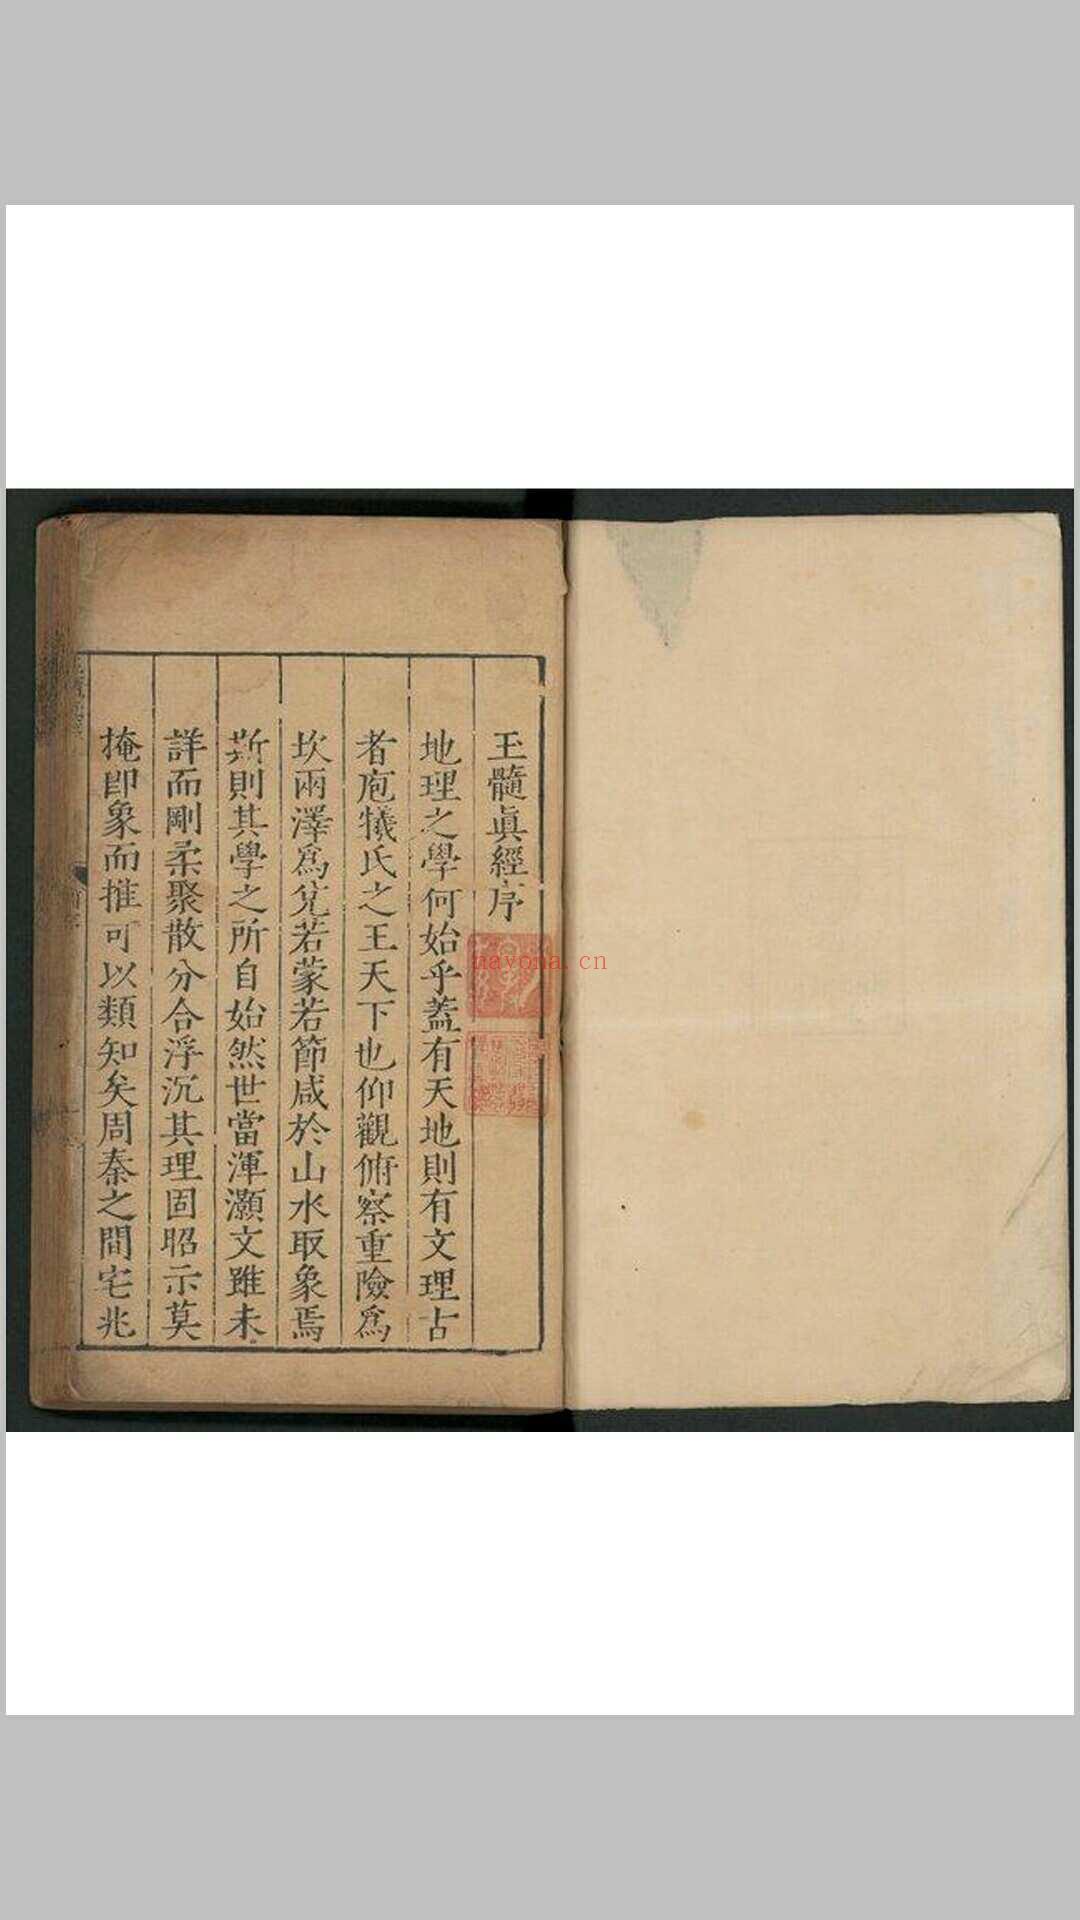 玉髓眞經序
地理之學何始乎蓋有天地則有文理古
者庖犧氏之王天下也仰觀俯察重險爲
坎兩澤爲兌若蒙若節咸於山水取象焉
斯則其學之所自始然世當渾灝文雖未
詳而剛柔聚散分合浮沉其理固昭示莫
掩卽象而推可以類知矣周秦之間宅兆
nayona.cn